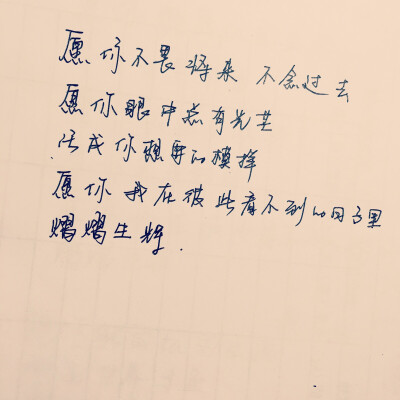 愿你不畏将来 不念过去
愿你眼中总有光芒
活成你想要的模样
愿你我在彼此看不到的日子里
熠熠生辉.